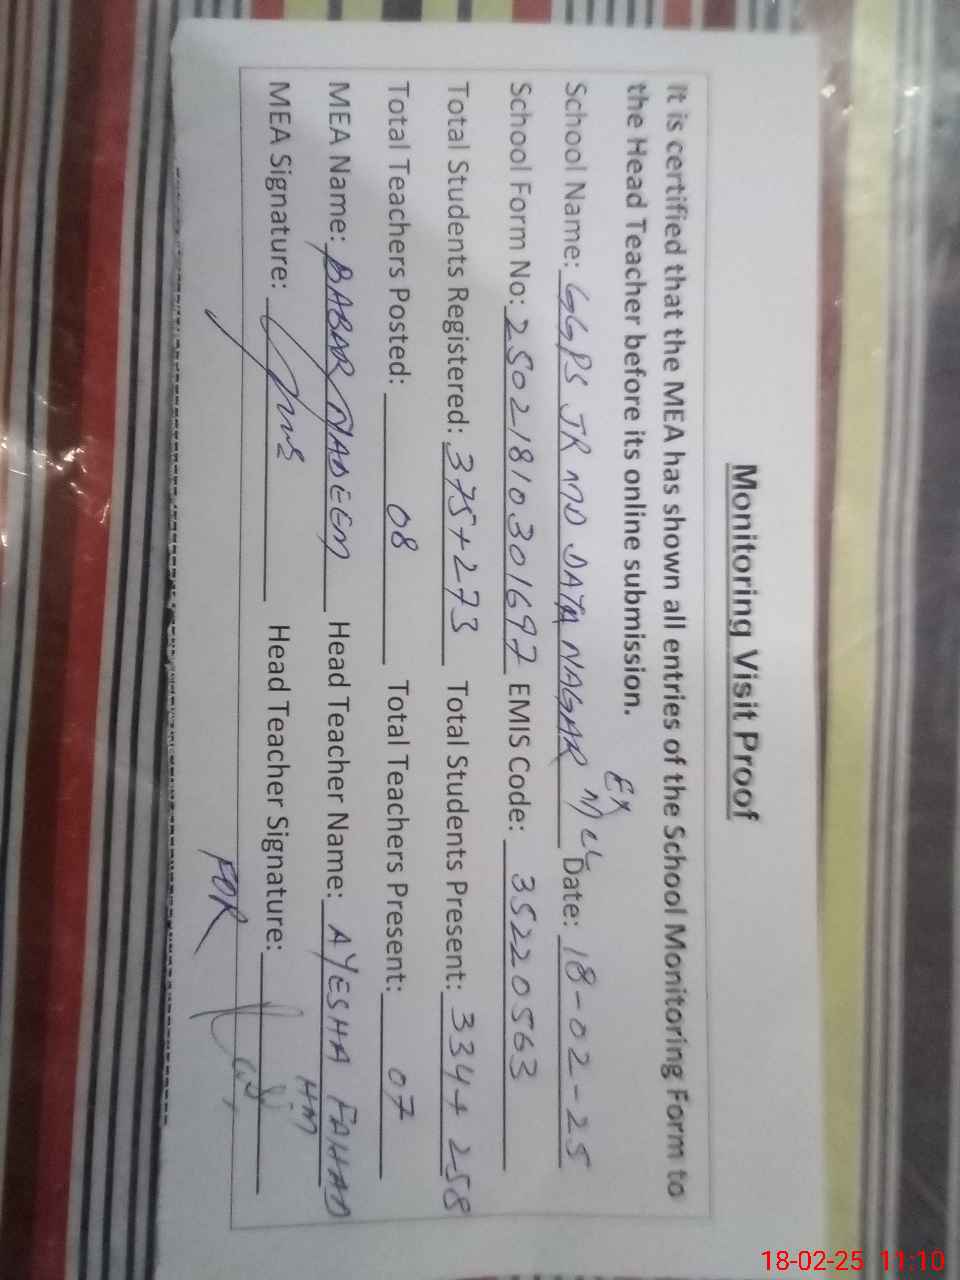 Monitoring Visit Proof
It is certified that the MEA has shown all entries of the School Monitoring Form to
the Head Teacher before its online submission.
School Name: GGPS JR MD DATA NAGAR Ex MCL Date: 18-02-25
School Form No: 25021810301697 EMIS Code: 35220563
Total Students Registered: 375+273 Total Students Present: 334+258
Total Teachers Posted: 08 Total Teachers Present: 07
MEA Name: BABAR NADEEM Head Teacher Name: AYESHA FAHAD
HM
MEA Signature: Head Teacher Signature:
FOR
18-02-25 11:10